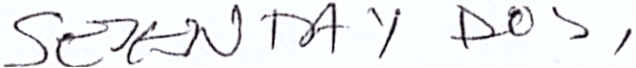 SETENTA Y DOS,